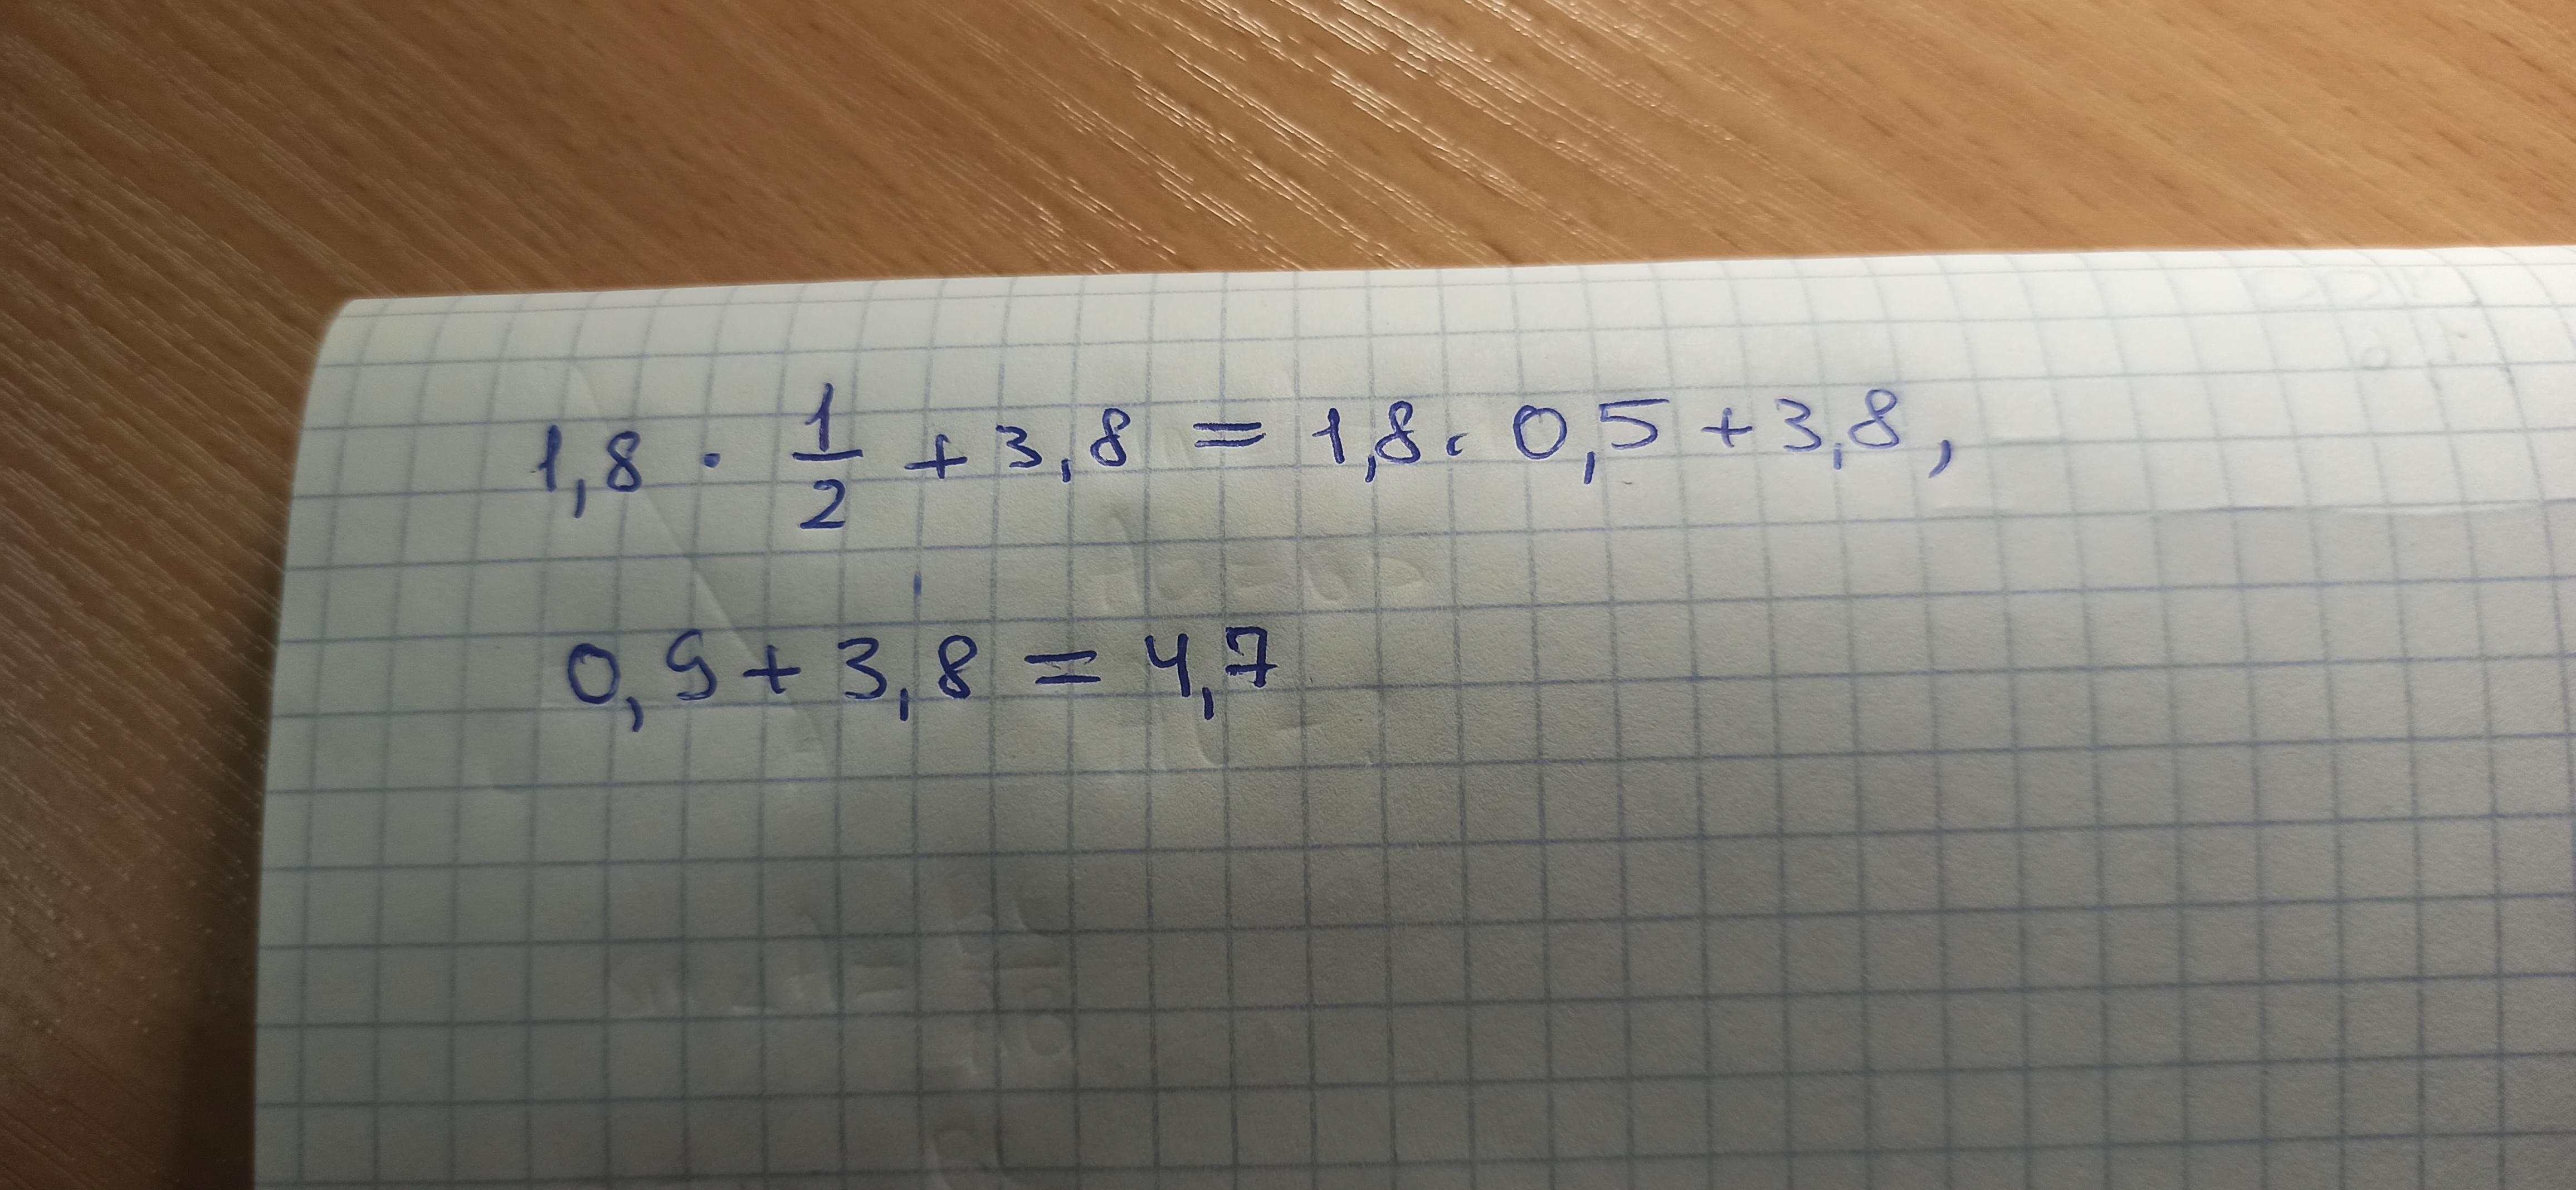 1,8 · 1/2 + 3,8 = 1,8 · 0,5 + 3,8,
0,9 + 3,8 = 4,7